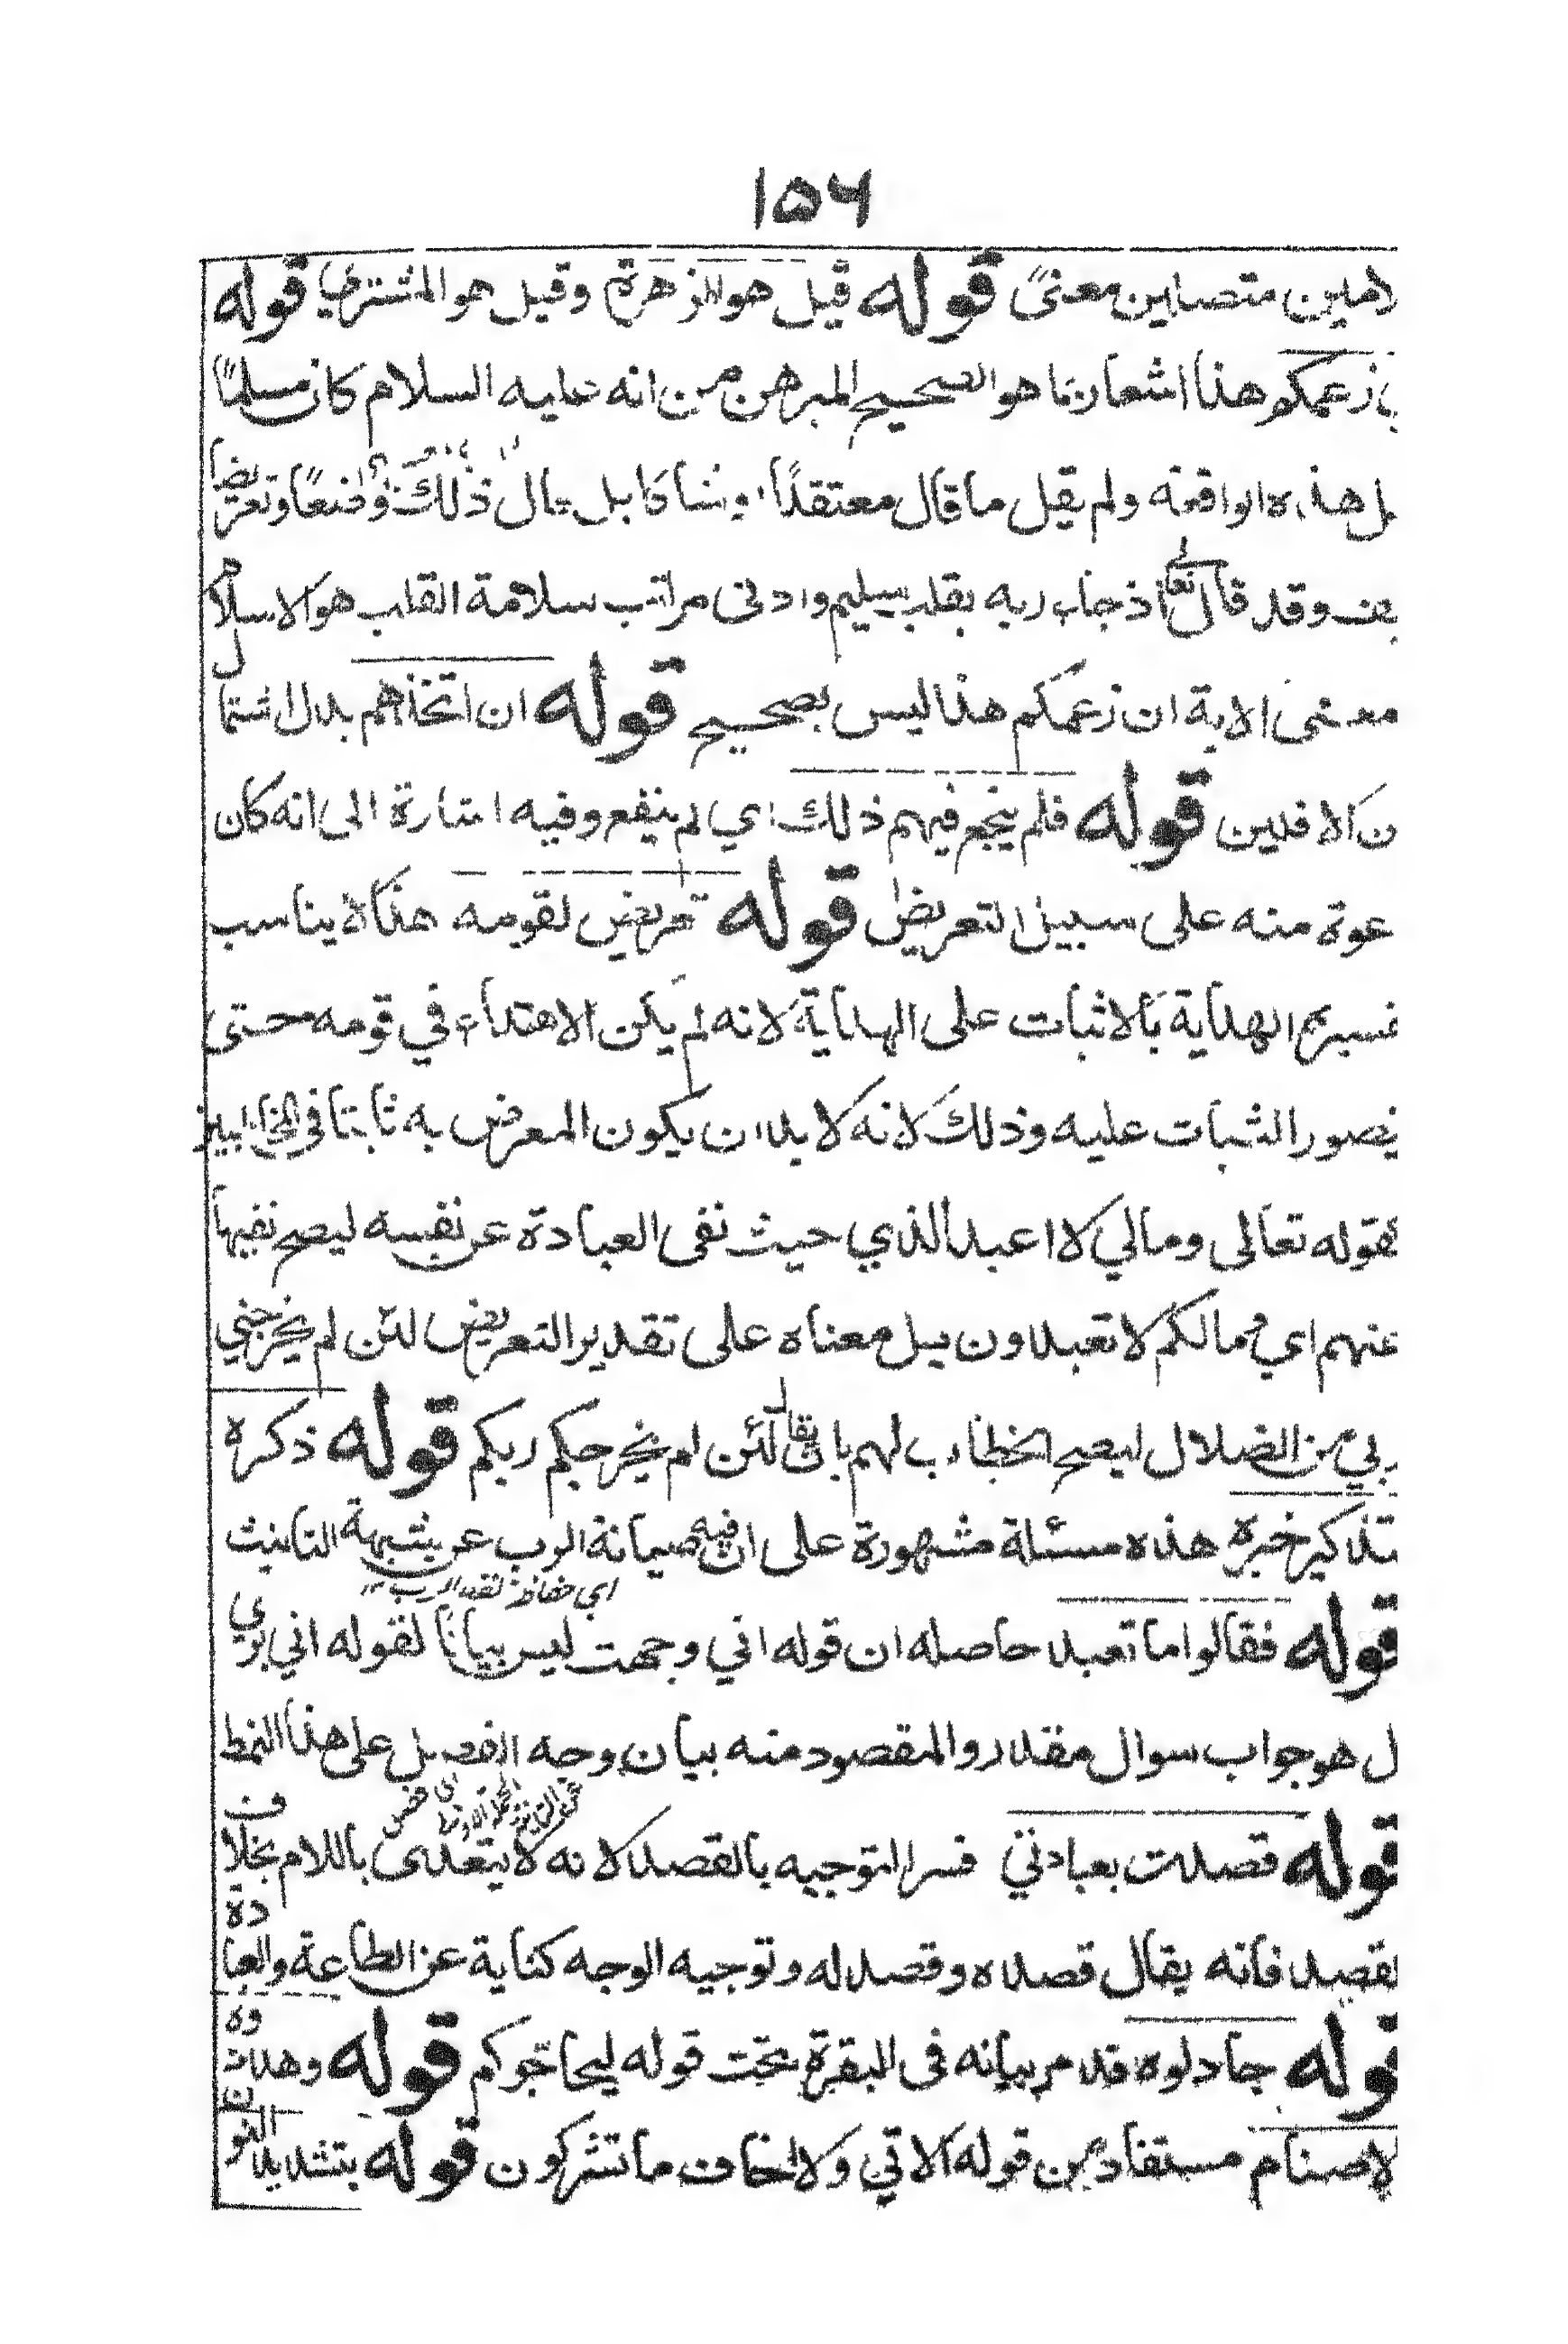 ١٥٦
لامين متصلين معنىً قوله قيل هو الزهرة وقيل هو المشتري قوله
زعمكم هذا اشعار بما هو الصحيح المبرهن من انه عليه السلام كان مسلمًا
هذه الواقعة ولم يقل ما قال معتقدًا وشاكا بل قال ذلك وضعًا وتعريضا
وقد قال تعالى اذ جاء ربه بقلب سليم وادنى مراتب سلامة القلب هو الاسلام
معنى الاية ان زعمكم هذا ليس بصحيح قوله ان اتخذاهم بدل اشتمال
ن الافلين قوله فلم ينجع فيهم ذلك اي لم ينفع وفيه اشارة الى انه كان
عوة منه على سبيل التعريض قوله تعريض لقومه هذا لا يناسب
فسيرهم الهداية بالاثبات على الهداية لانه لم يكن الاهتداء في قومه حتى
يتصور الثبات عليه وذلك لانه لا بد ان يكون المعرض به ثابتا في الجانبين
كقوله تعالى ومالي لا اعبد الذي حيث نفى العبادة عن نفسه ليصح نفيها
عنهم اي ومالكم لا تعبدون بل معناه على تقدير التعريض لئن لم يخرجني
ربي من الضلال ليصح الخطاب لهم بان يقال لئن لم يخرجكم ربكم قوله ذكره
تذكير خبره هذه مسئلة مشهورة على ان فيه صيانة الرب عن شبهة التانيث
اي حفاظة لفظ الرب ١٢
قوله فقالوا ما تعبد حاصله ان قوله اني وجهت ليس بيانًا لقوله اني بري
ل هو جواب سوال مقدر والمقصود منه بيان وجه الفصل على هذا النمط
قوله قصدت بعبادتي فسر التوجيه بالقصد لانه لا يتعدى باللام بخلاف
لقصد فانه يقال قصده وقصد له وتوجيه الوجه كناية عن الطاعة والعبادة
قوله جادلوه قد مر بيانه في البقرة تحت قوله ليحاجوكم قوله وهددوه
لاصنام مستفاد من قوله الاتي ولا اخاف ما تشركون قوله بتشديد النون